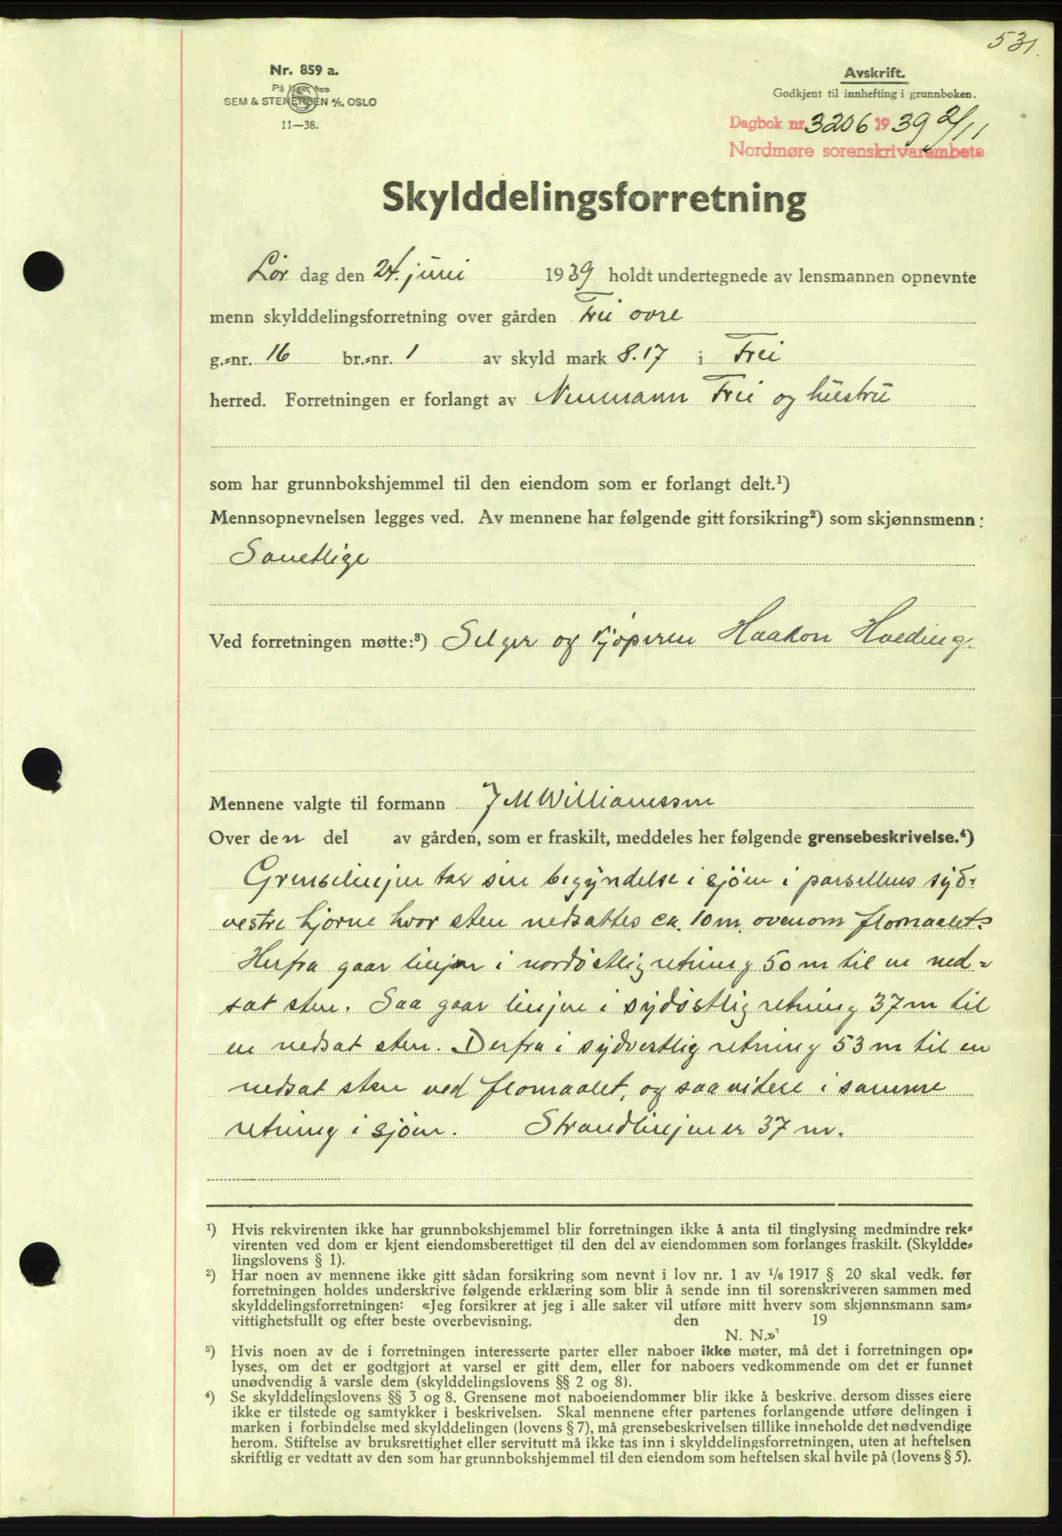 531.
Nr. 859 a.
På lager hos
SEM & STENERSEN A/S, OSLO
11—38.
Avskrift.
Godkjent til innhefting i grunnboken.
Dagbok nr. 3206 1939 2/11
Nordmøre sorenskrivarembete
Skylddelingsforretning
Lør dag den 24. juni 1939 holdt undertegnede av lensmannen opnevnte
menn skylddelingsforretning over gården Frei øvre
g.-nr. 16 br.-nr. 1 av skyld mark 8.17 i Frei
herred. Forretningen er forlangt av Neumann Frei og hustru
som har grunnbokshjemmel til den eiendom som er forlangt delt.¹)
Mennsopnevnelsen legges ved. Av mennene har følgende gitt forsikring²) som skjønnsmenn:
Samtlige
Ved forretningen møtte:³) Selger og kjøperen Haakon Hveding.
Mennene valgte til formann J M Williamssen
Over den del av gården, som er fraskilt, meddeles her følgende grensebeskrivelse.⁴)
Grenselinjen tar sin begyndelse i sjøen i parsellens syd-
vestre hjørne hvor sten nedsattes ca. 10 m. ovenom flomaalet.
Herfra gaar linjen i nordøstlig retning 50 m til en ned-
sat sten. Saa gaar linjen i sydøstlig retning 37 m til
en nedsat sten. Derfra i sydvestlig retning 53 m til en
nedsat sten ved flomaalet, og saa videre i samme
retning i sjøen. Strandlinjen er 37 m.
¹) Hvis rekvirenten ikke har grunnbokshjemmel blir forretningen ikke å anta til tinglysing medmindre rek-
virenten ved dom er kjent eiendomsberettiget til den del av eiendommen som forlanges fraskilt. (Skyldde-
lingslovens § 1).
²) Har noen av mennene ikke gitt sådan forsikring som nevnt i lov nr. 1 av 1/6 1917 § 20 skal vedk. før
forretningen holdes underskrive følgende erklæring som blir å sende inn til sorenskriveren sammen med
skylddelingsforretningen: «Jeg forsikrer at jeg i alle saker vil utføre mitt hverv som skjønnsmann sam-
vittighetsfullt og efter beste overbevisning. den 19
N. N.»
³) Hvis noen av de i forretningen interesserte parter eller naboer ikke møter, må det i forretningen op-
lyses, om det er godtgjort at varsel er gitt dem, eller for naboers vedkommende om det er funnet
unødvendig å varsle dem (skylddelingslovens §§ 2 og 8).
⁴) Se skylddelingslovens §§ 3 og 8. Grensene mot naboeiendommer blir ikke å beskrive, dersom disses eiere
ikke er tilstede og samtykker i beskrivelsen. Skal mennene efter partenes forlangende utføre delingen i
marken i forbindelse med skylddelingen (lovens § 7), må grensebeskrivelsen tillike inneholde det nødvendige
herom. Stiftelse av bruksrettighet eller servitutt må ikke tas inn i skylddelingsforretningen, uten at heftelsen
skriftlig er vedtatt av den som har grunnbokshjemmel til den eiendom som heftelsen skal hvile på (lovens § 5).